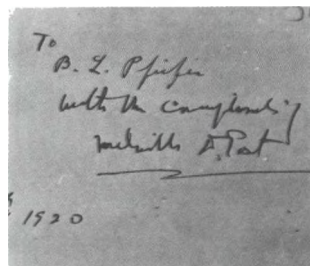 To
B. L. Pfeifer
with the compliments of
Melville D. Post
1920